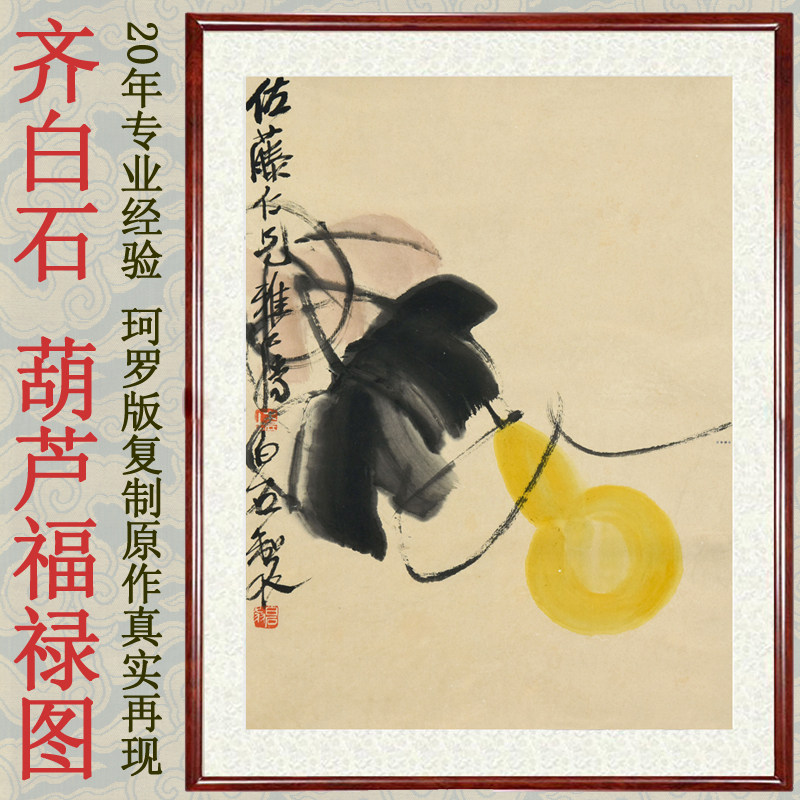 齐白石 葫芦福禄图
20年专业经验 珂罗版复制原作真实再现
佐藤仁兄雅
白石